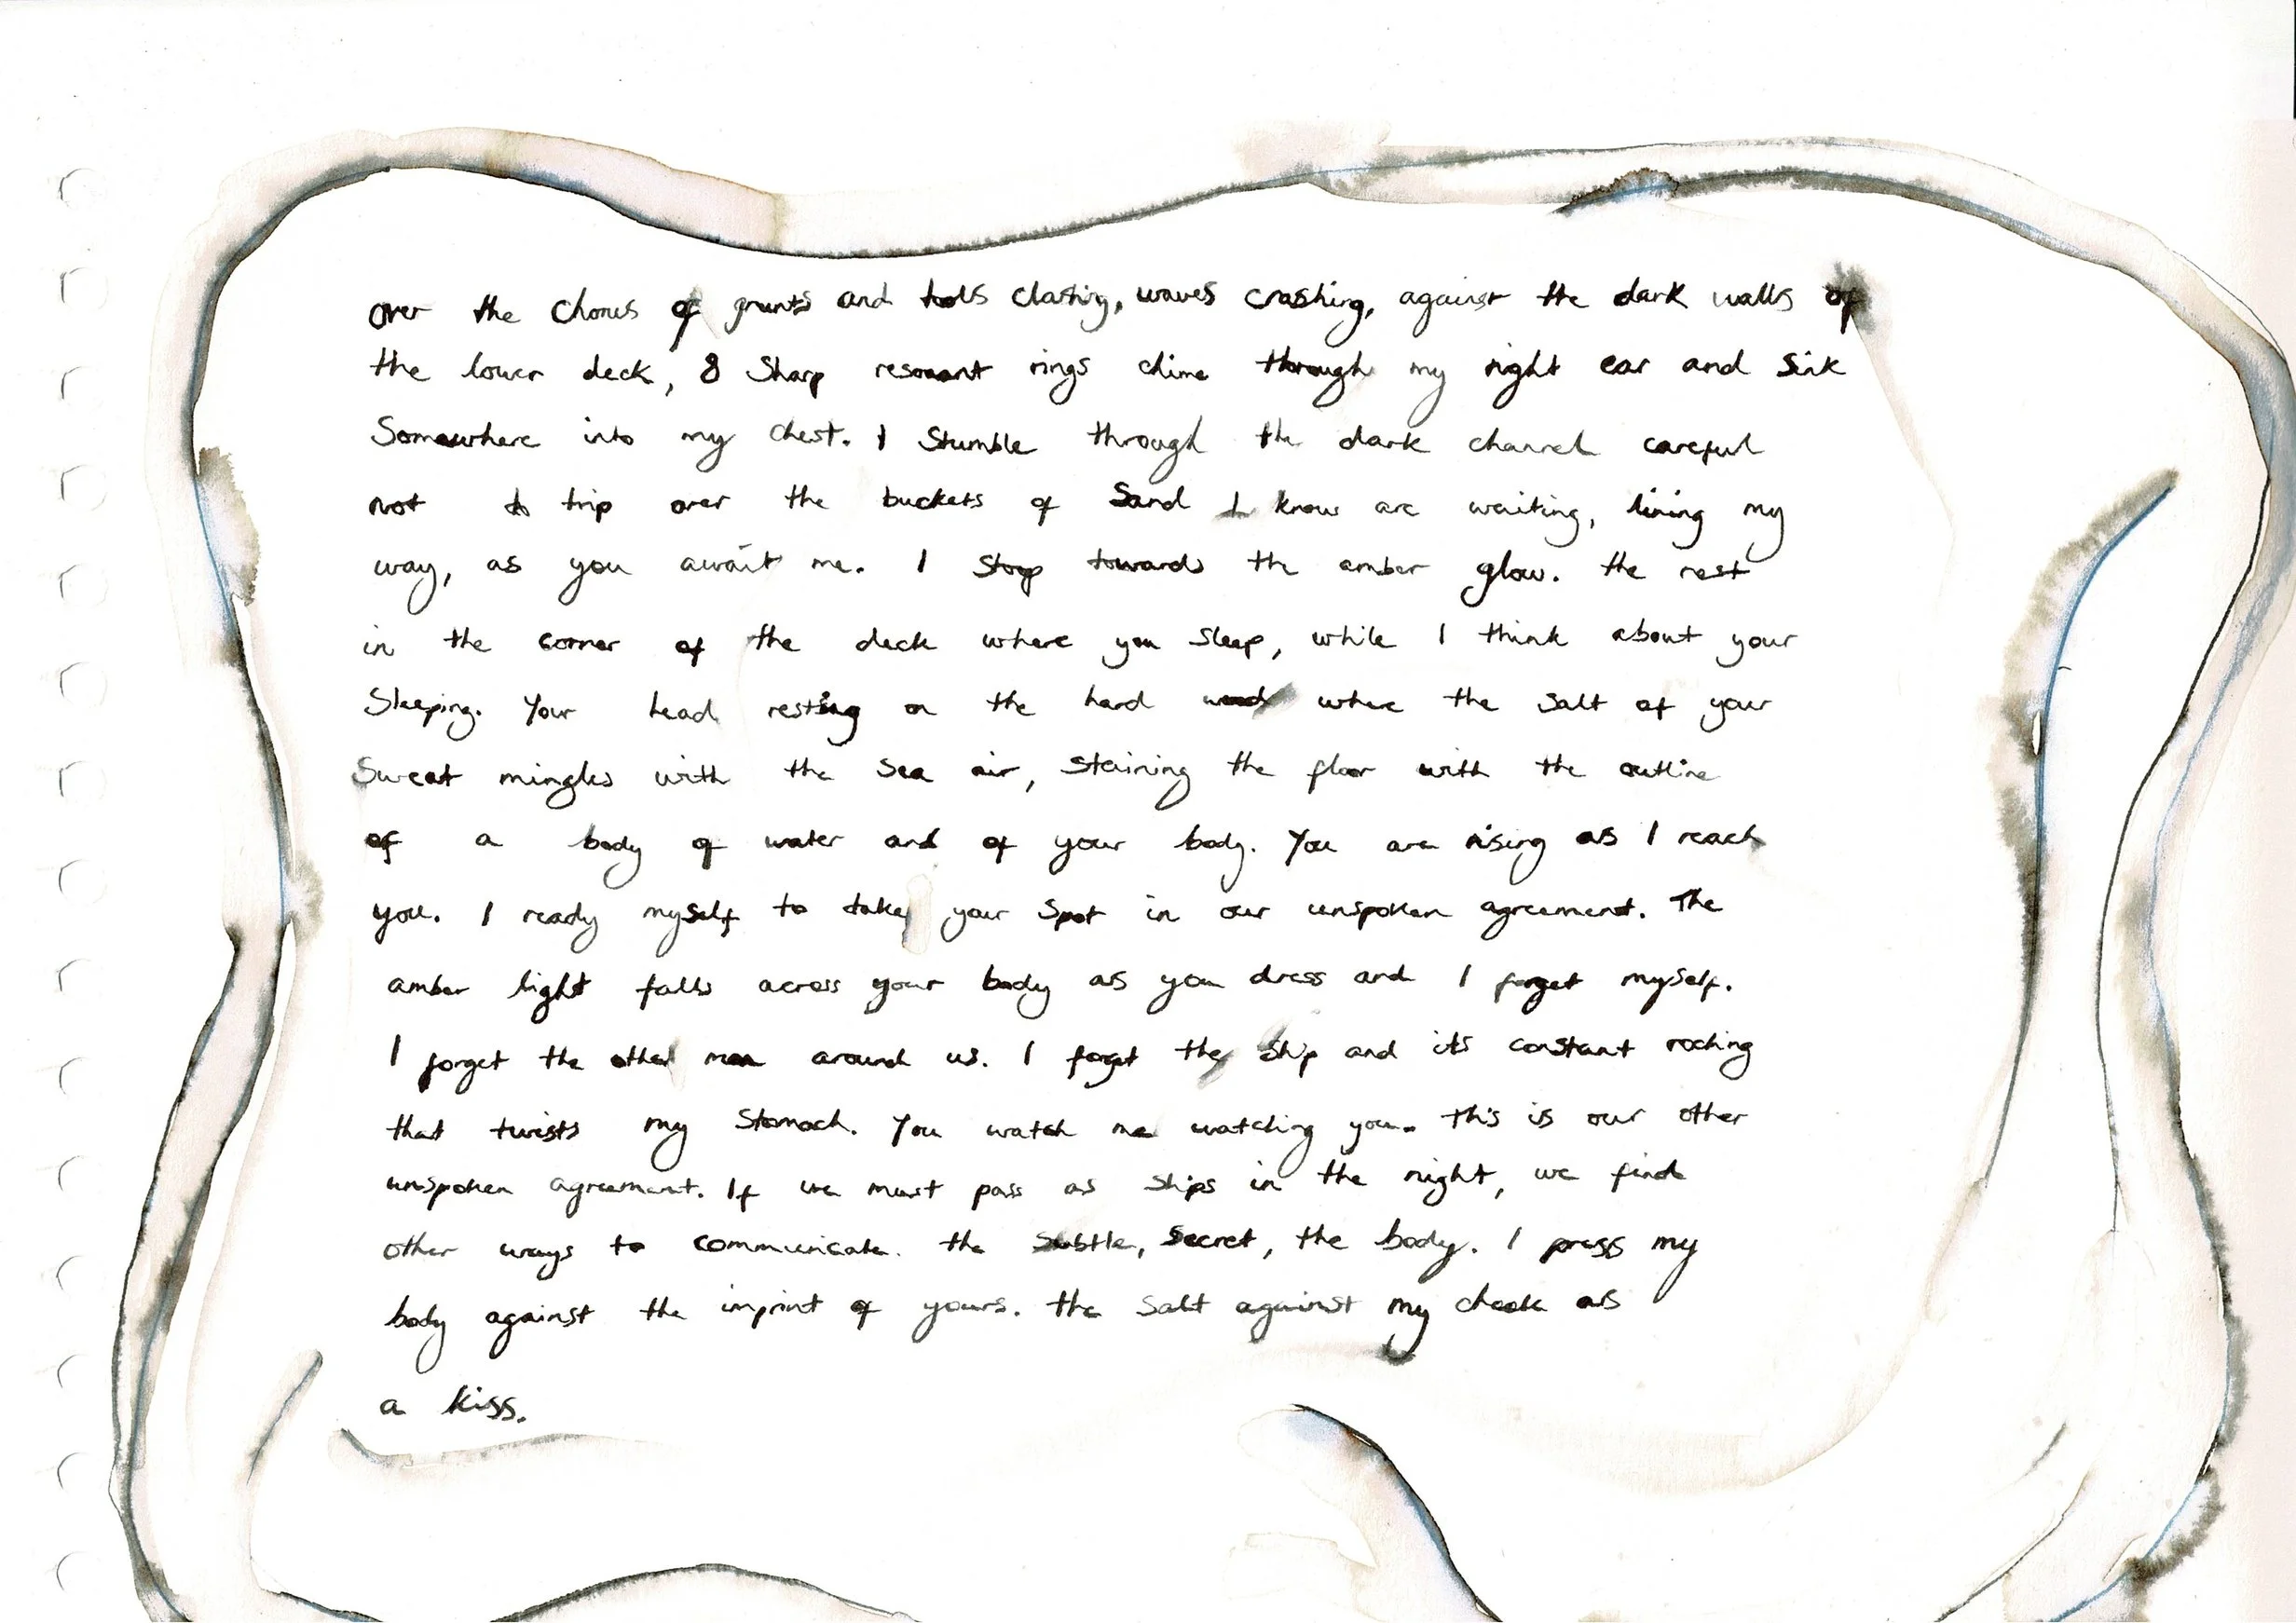 over the chorus of grunts and tools clashing, waves crashing, against the dark walls of
the lower deck, 8 sharp resonant rings chime through my right ear and sink
Somewhere into my chest. I stumble through the dark channel careful
not to trip over the buckets of sand I know are waiting, lining my
way, as you await me. I stop towards the amber glow. the rest
in the corner of the deck where you sleep, while I think about your
Sleeping. Your head resting on the hard wood where the salt of your
Sweat mingles with the sea air, staining the floor with the outline
of a body of water and of your body. You are rising as I reach
you. I ready myself to take your spot in our unspoken agreement. The
amber light falls across your body as you dress and I forget myself.
I forget the other men around us. I forget the ship and its constant rocking
that twists my stomach. You watch me watching you. This is our other
unspoken agreement. If we must pass as ships in the night, we find
other ways to communicate. the subtle, secret, the body. I press my
body against the imprint of yours. the salt against my cheek as
a kiss.